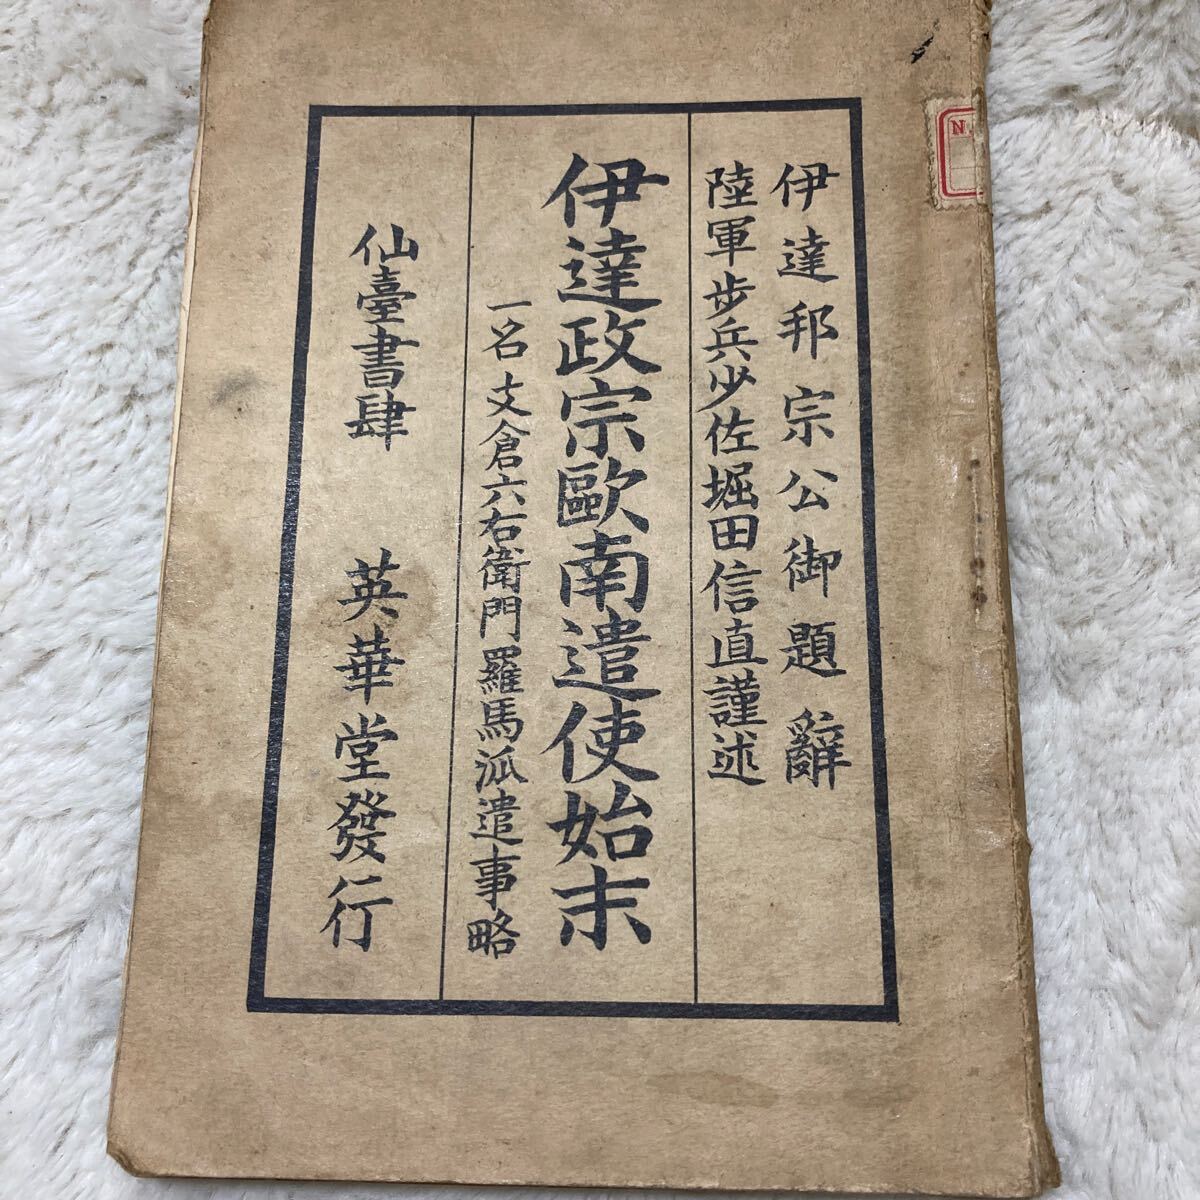 伊達邦宗公御題辭
陸軍歩兵少佐堀田信直謹述
伊達政宗歐南遣使始末
一名支倉六右衛門羅馬派遣事略
仙臺書肆 英華堂發行
N.